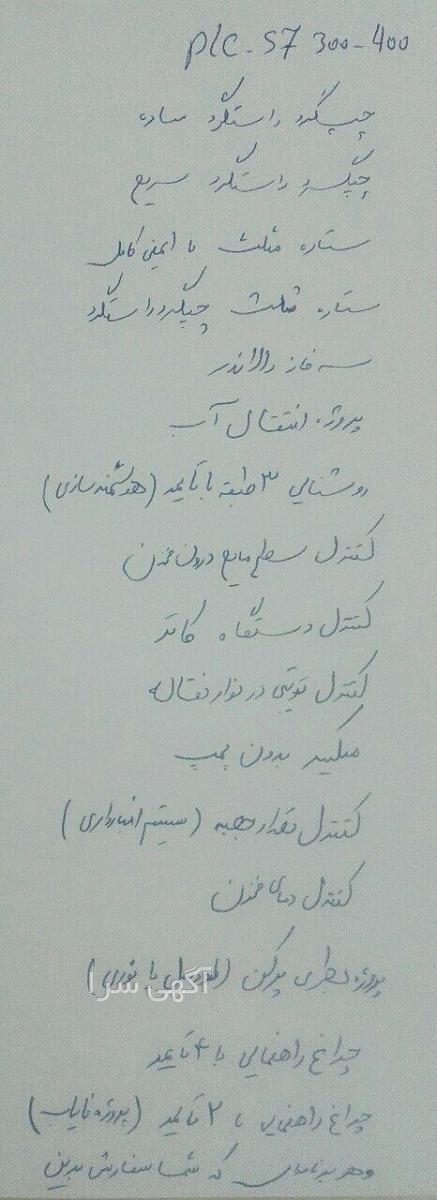 PLC-S7 300-400
چپگرد راستگرد ساده
چپگرد راستگرد سریع
ستاره مثلث با ایمنی کامل
ستاره مثلث چپگرد راستگرد
سه فاز دالاندر
پروژه انتقال آب
روشنایی ۳ طبقه با تایمر (هوشمندسازی)
کنترل سطح مایع درون مخزن
کنترل دستگاه کاتر
کنترل توپی در نوار نقاله
میکسر بدون پمپ
کنترل تعداد جعبه (سیستم انبارداری)
کنترل دمای مخزن
پروژه بطری پرکن (با نوری)
آگهی سرا
چراغ راهنمایی با ۴ تایمر
چراغ راهنمایی با ۲ تایمر (پروژه نایاب)
و هر برنامه‌ای که شما سفارش بدین